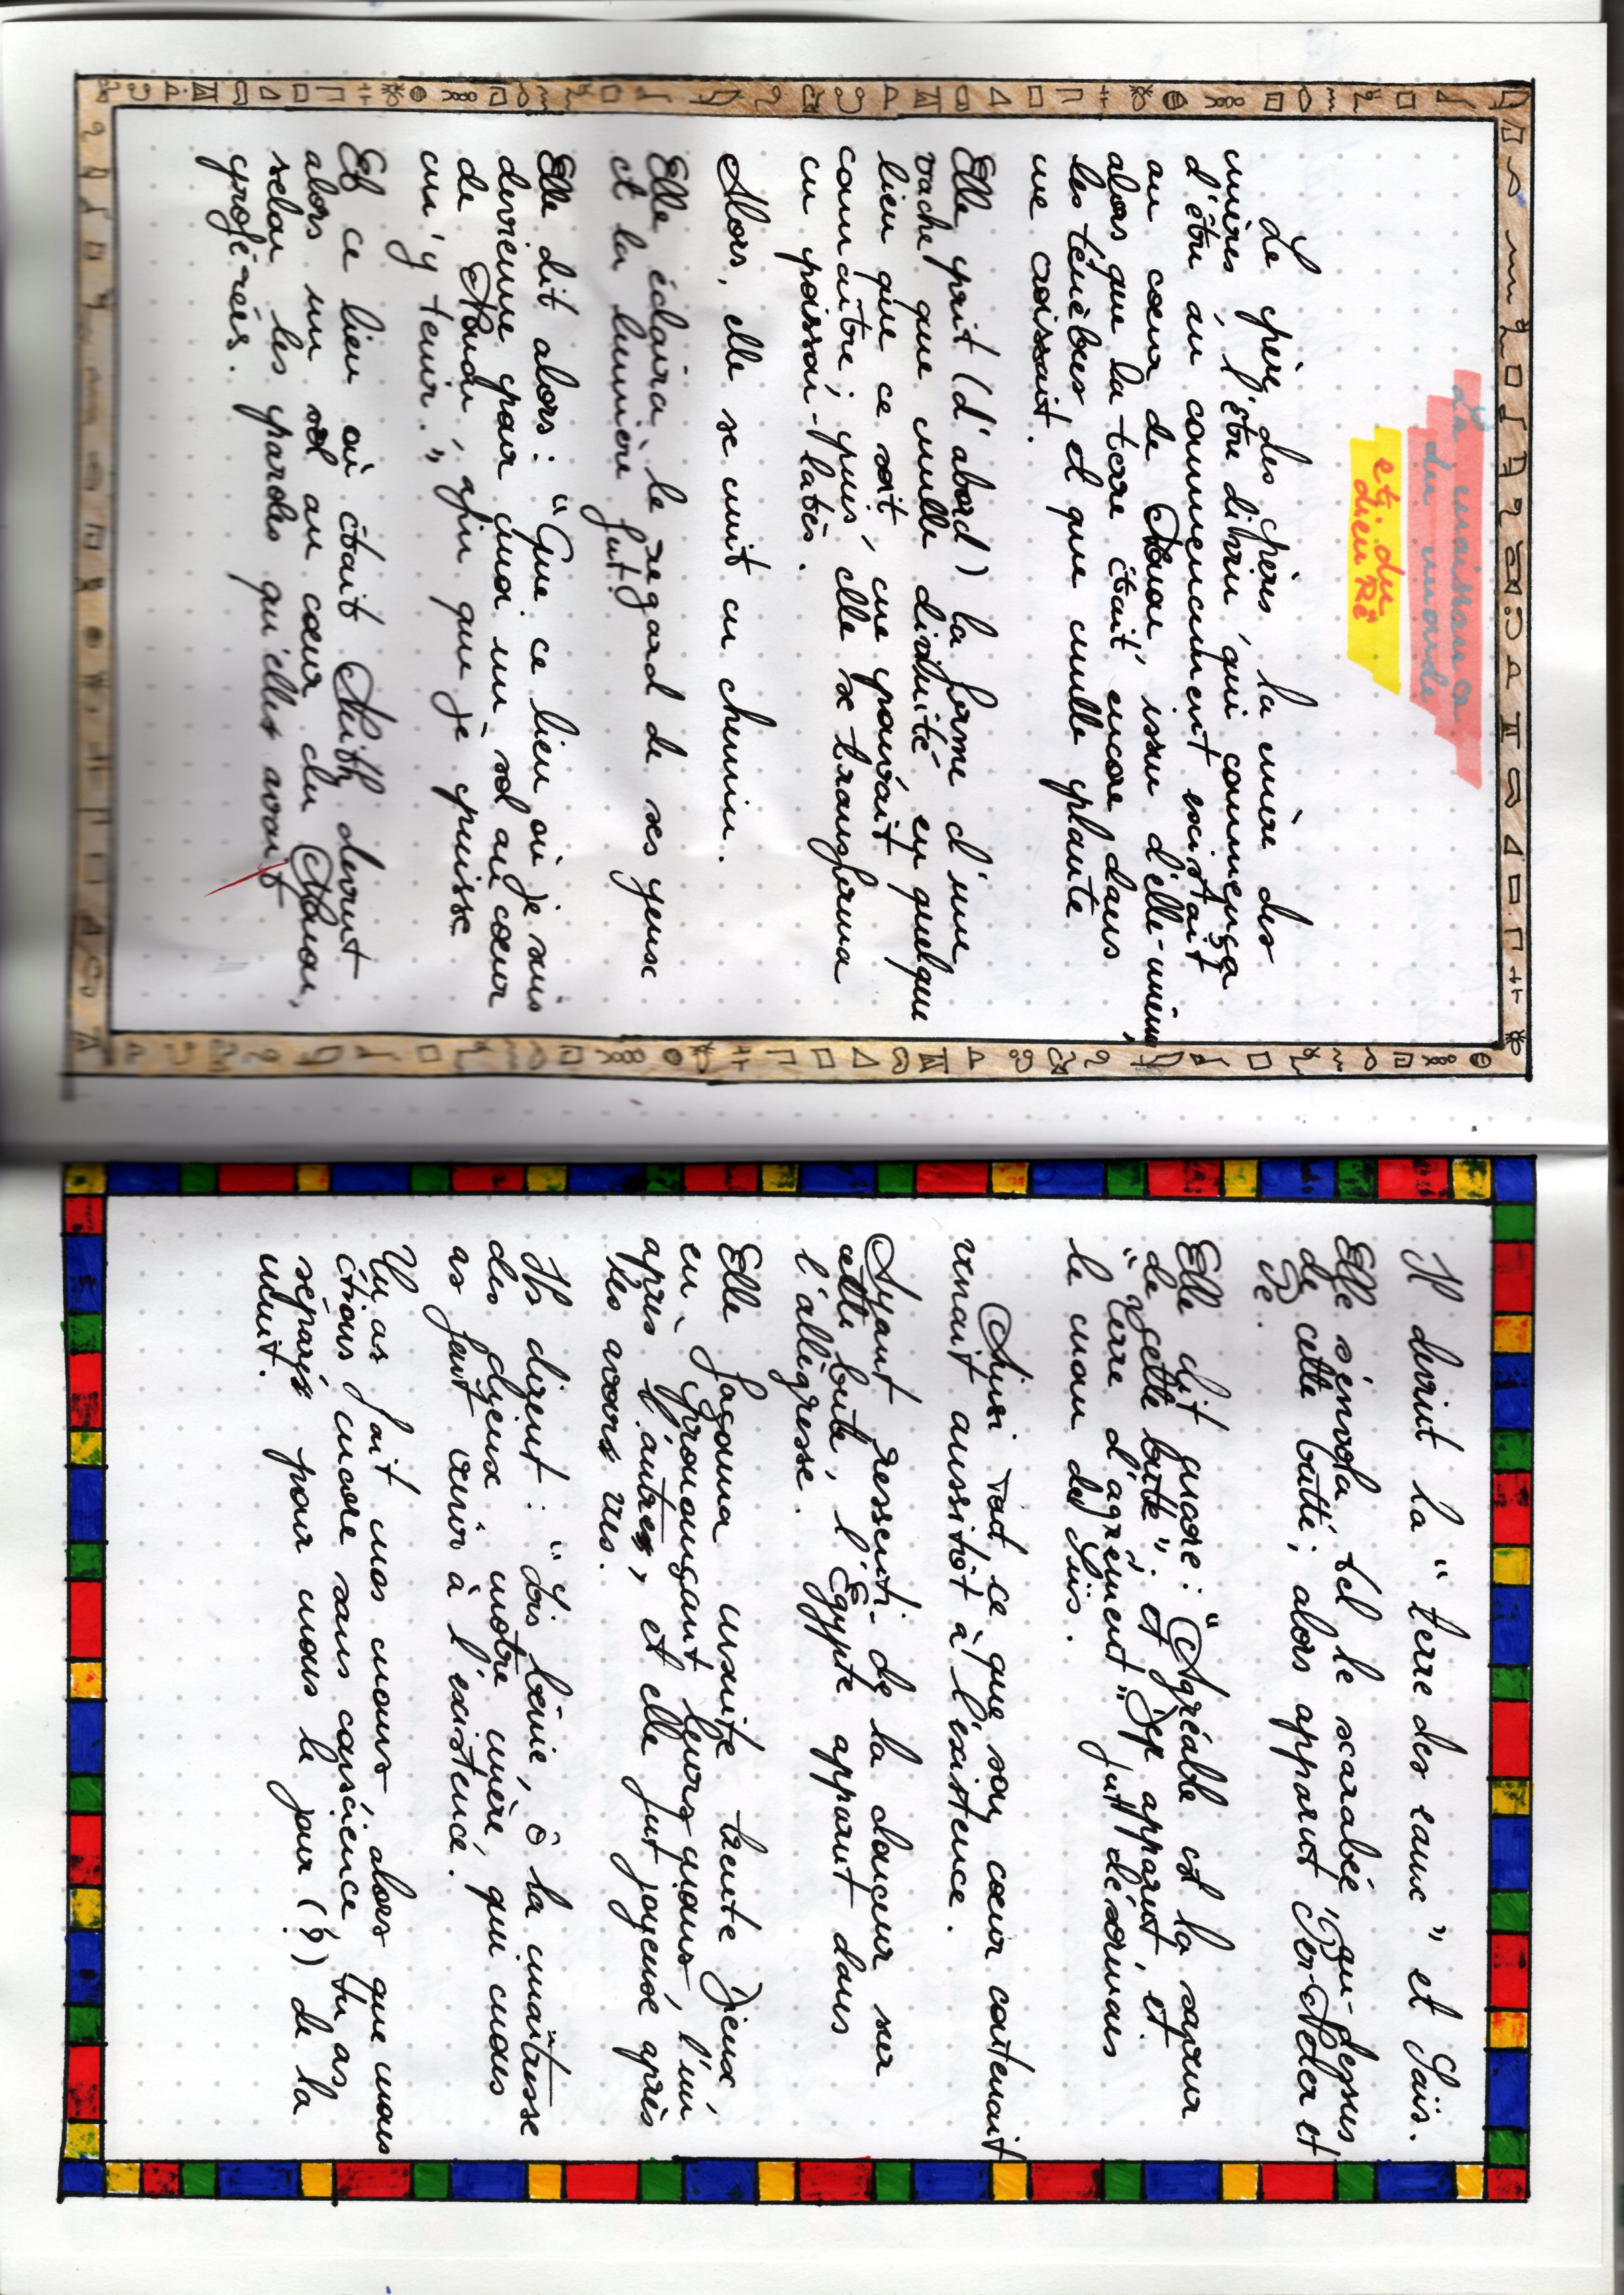 La naissance
du monde
et du
dieu Rê
Le père des pères, la mère des
mères, l'être divin qui commença
d'être au commencement existait
au cœur de Nouou, issu d'elle-même,
alors que la terre était encore dans
les ténèbres, et que nulle plante
ne croissait.
Elle prit (d'abord) la forme d'une
vache que nulle divinité, en quelque
lieu que ce soit, ne pouvait
connaître; puis elle se transforma
en poisson-latès.
Alors, elle se mit en chemin.
Elle éclaira le regard de ses yeux
et la lumière fut.
Elle dit alors : "Que ce lieu où je suis
devienne pour moi un sol au cœur
de Nouou, afin que je puisse
m'y tenir."
Et ce lieu où était Neith devint
alors un sol au cœur du Nouou,
selon les paroles qu'elle avait
proférées.
Il devint la "terre des eaux" et Saïs.
Elle s'envola, tel le scarabée, au-dessus
de cette butte; alors apparut Per-Neter et
Pe.
Elle dit encore : "Agréable est la saveur
de cette butte"; et Dep apparut, et
"Terre d'agrément" fut désormais
le nom de Saïs.
Ainsi tout ce que son cœur contenait
venait aussitôt à l'existence.
Ayant ressenti de la douceur sur
cette butte, l'Egypte apparut dans
l'allégresse.
Elle façonna ensuite trente Dieux,
en prononçant leurs noms, l'un
après l'autre, et elle fut joyeuse après
les avoir vus.
Ils dirent : "Sois bénie, ô la maîtresse
des dieux, notre mère, qui nous
as fait venir à l'existence.
Tu as fait nos noms, alors que nous
étions encore sans conscience, tu as
séparé pour nous le jour (?) de la
nuit.